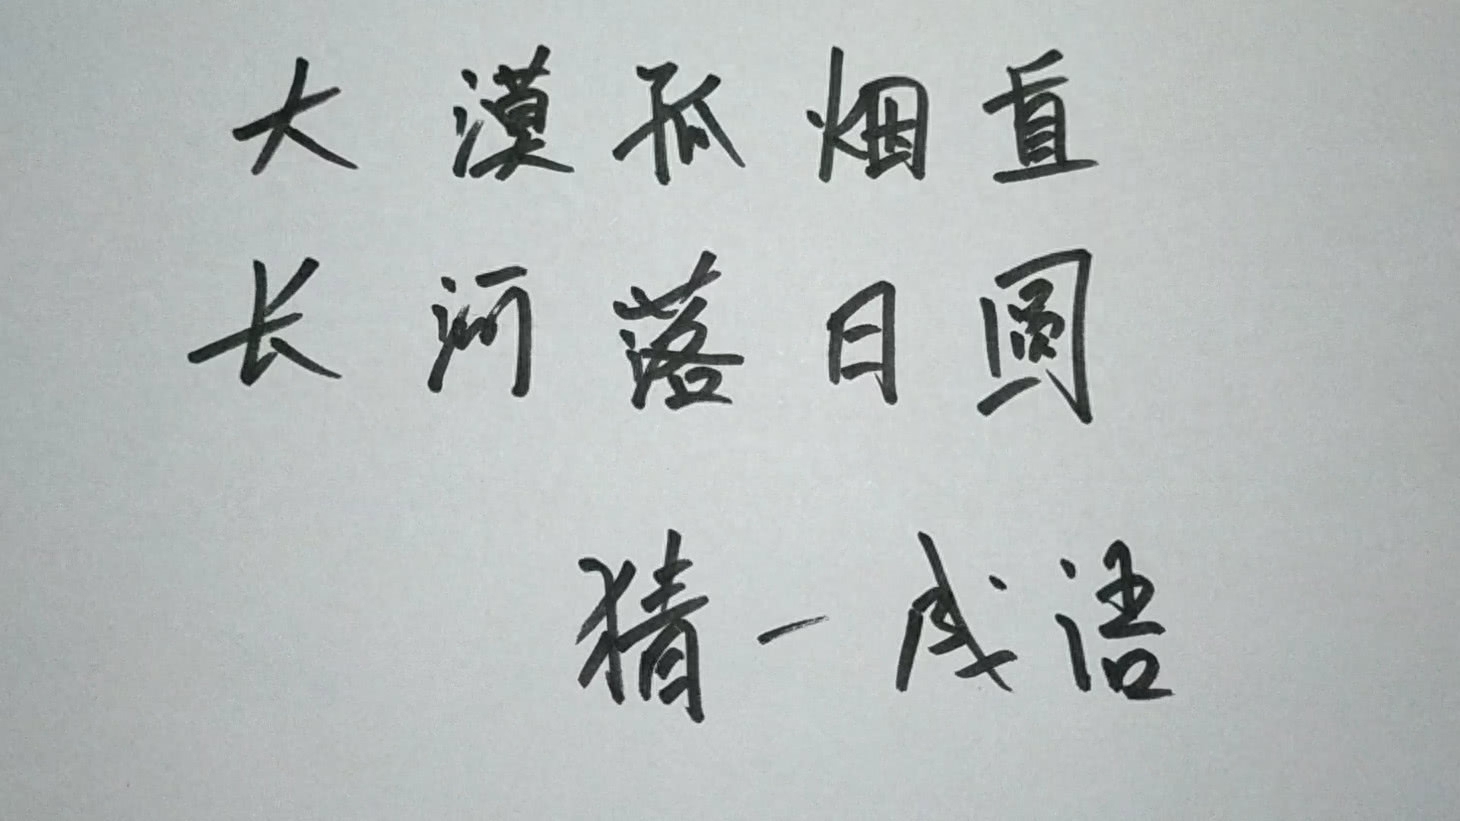 大漠孤烟直
长河落日圆
猜一成语